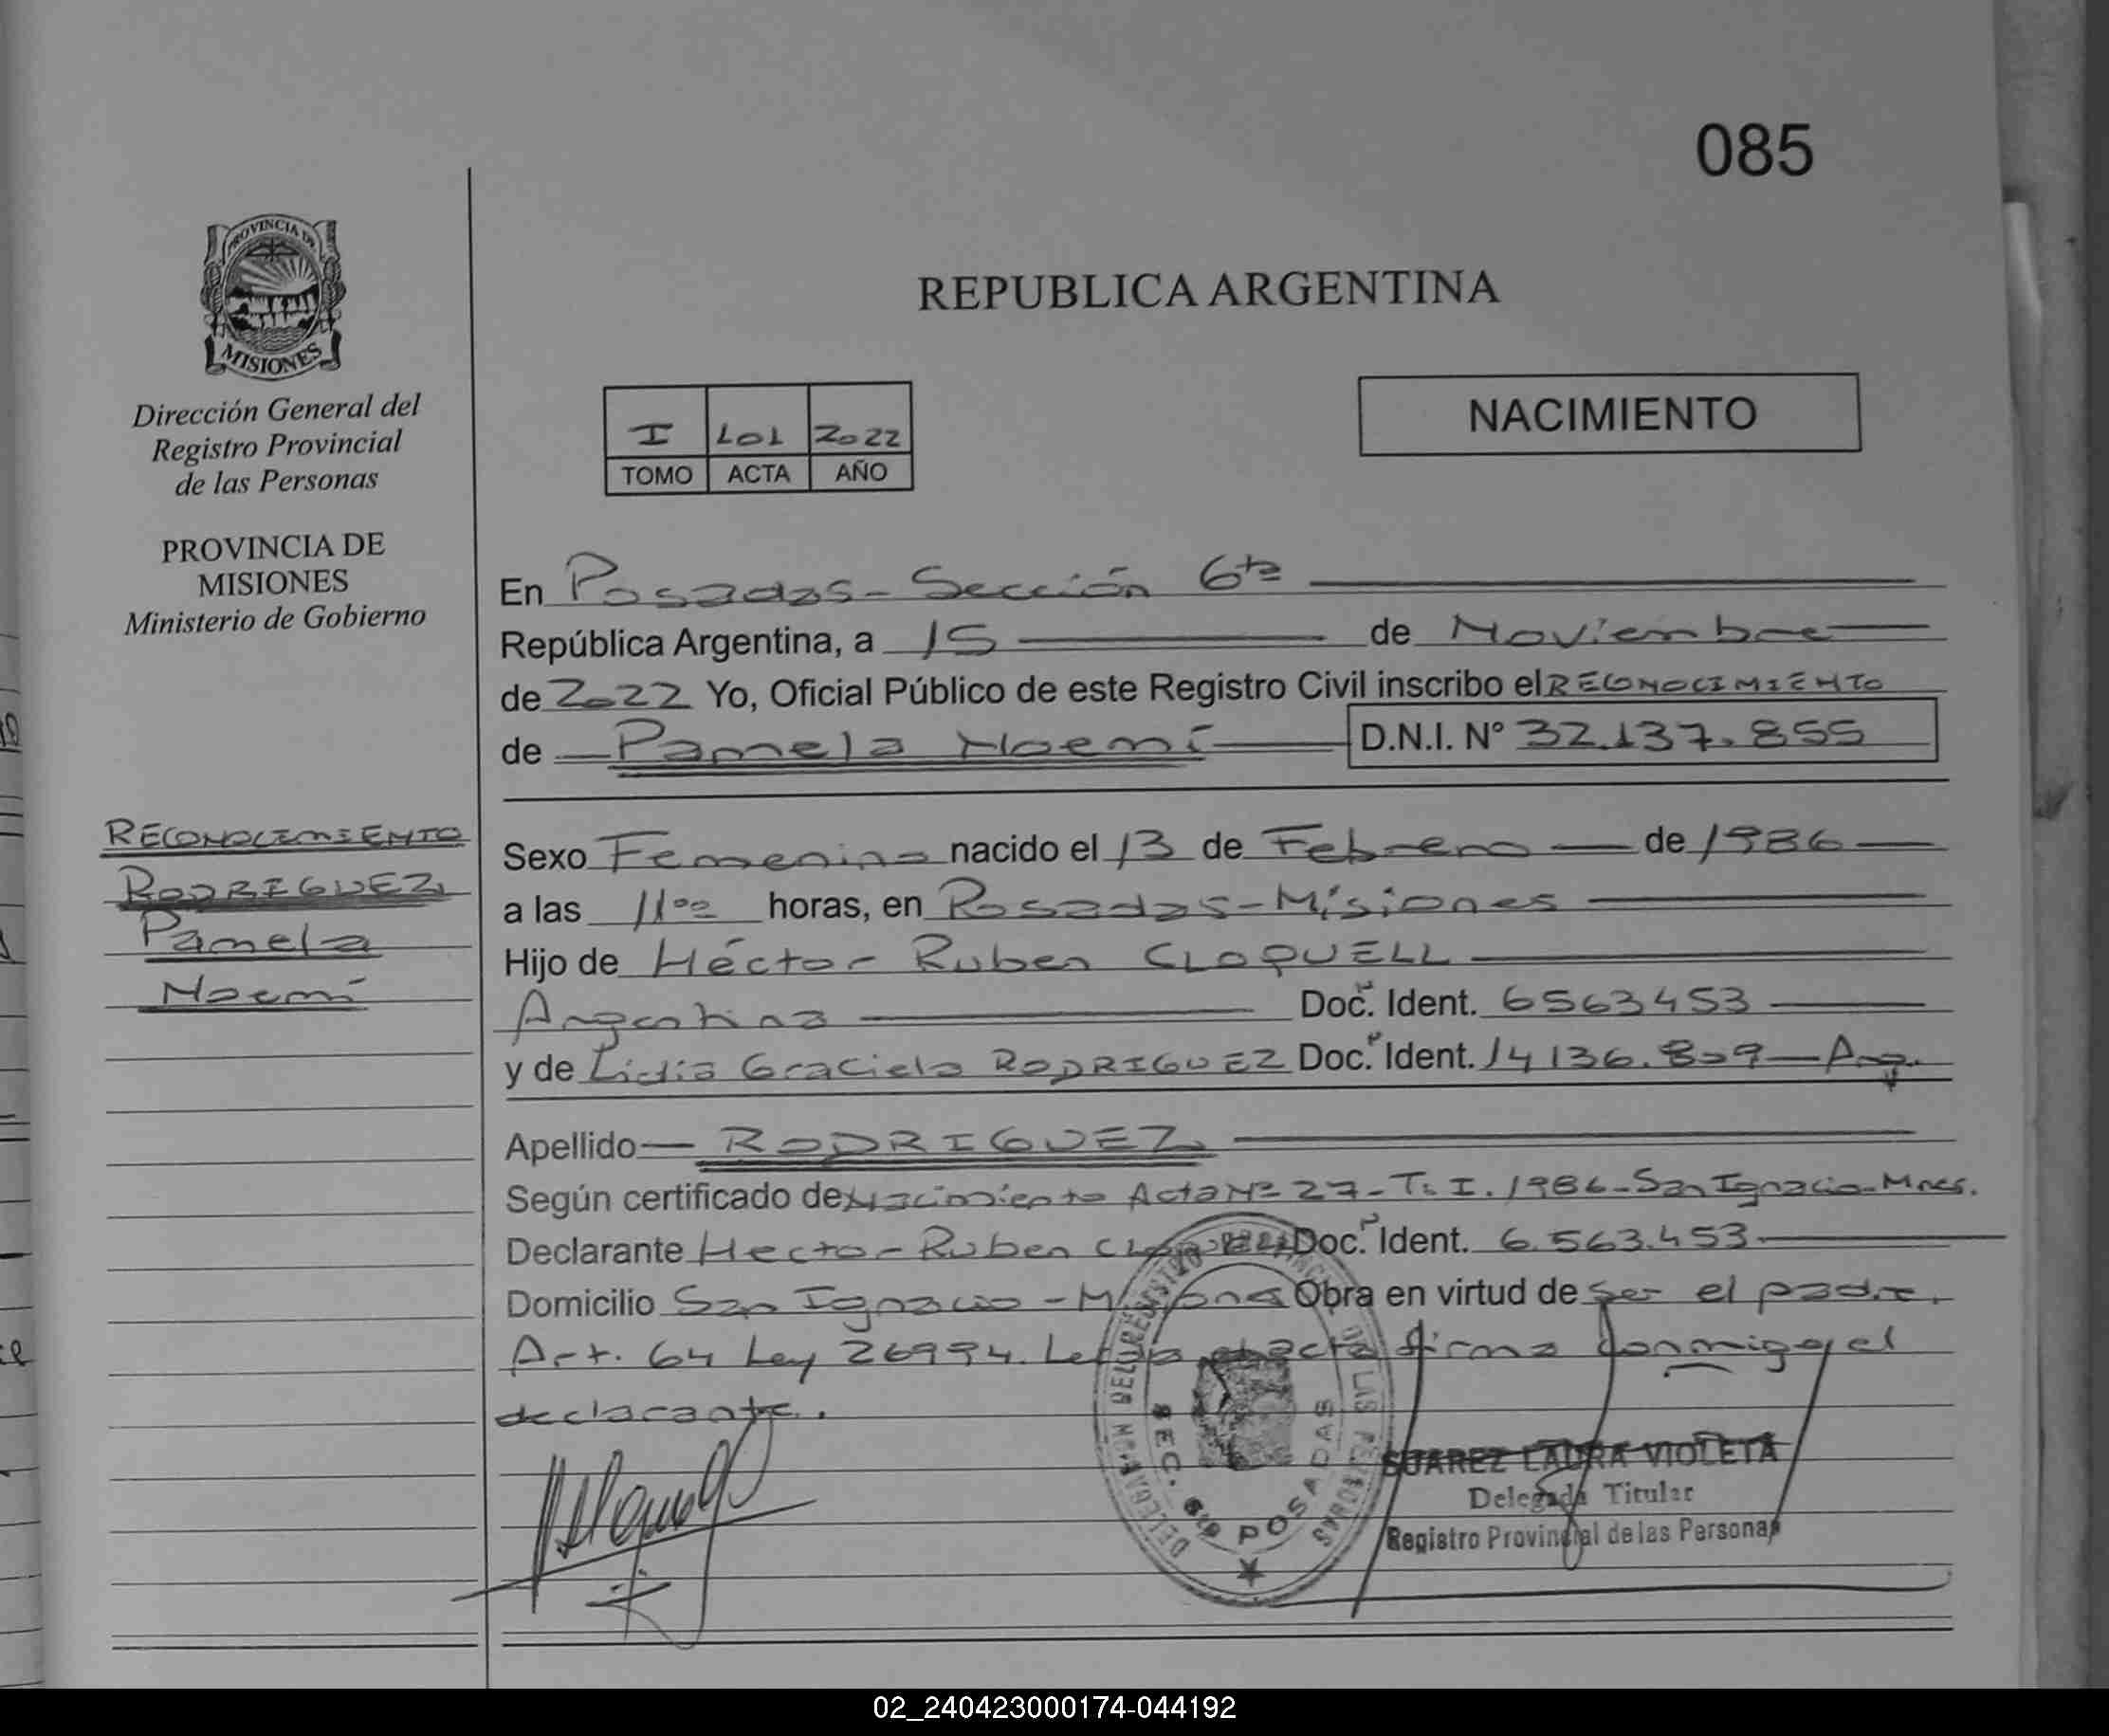 085
PROVINCIA DE
MISIONES
Dirección General del
Registro Provincial
de las Personas
PROVINCIA DE
MISIONES
Ministerio de Gobierno
REPUBLICA ARGENTINA
I 101 2022
TOMO ACTA AÑO
NACIMIENTO
En Posadas - Sección 6ta
República Argentina, a 15 de Noviembre
de 2022 Yo, Oficial Público de este Registro Civil inscribo el RECONOCIMIENTO
de Pamela Noemí D.N.I. N° 32.137.855
RECONOCIMIENTO
RODRIGUEZ
Pamela
Noemí
Sexo Femenino nacido el 13 de Febrero de 1986
a las 11°° horas, en Posadas - Misiones
Hijo de Héctor Ruben CLOQUELL
Argentina Doc. Ident. 6563453
y de Lidia Graciela RODRIGUEZ Doc. Ident. 14136.809 - Arg.
Apellido RODRIGUEZ
Según certificado de Nacimiento Acta Nº 27 - T: I. 1986 - San Ignacio - Mnes.
Declarante Hector Ruben CLOQUELL Doc. Ident. 6.563.453
Domicilio San Ignacio - Misiones Obra en virtud de ser el padre.
Art. 64 Ley 26994. Leída el acta firma conmigo el
declarante.
DELEGACION DEL REGISTRO PROVINCIAL DE LAS PERSONAS
SEC. 6ta POSADAS
SUAREZ LAURA VIOLETA
Delegada Titular
Registro Provincial de las Personas
02_240423000174-044192